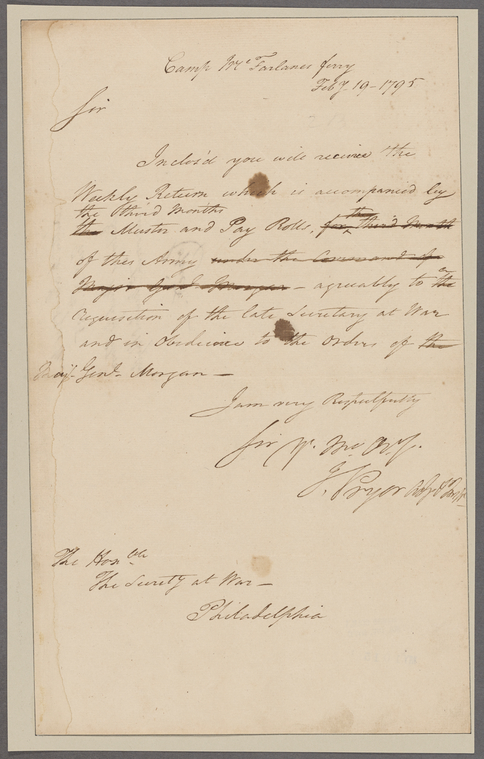 Camp Mc Farlanes ferry
Feby. 19 - 1795
Sir
Inclos'd you will receive the
Weekly Return which is accompanied by
the third Months
the Muster and Pay Rolls, for the third Month
of this Army under the Command of
Major Genl. Morgan - agreeably to the
requisition of the late Secretary at War
and in Obedience to the Orders of the
Maj. Genl. Morgan -
I am very Respectfully
Sir Yr.
J. Pryor
The Honble
The Secrety at War -
Philadelphia